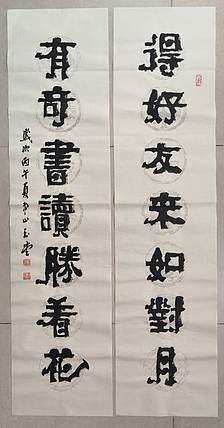 得好友来如對月
有奇書讀勝看花
歲次丙午夏